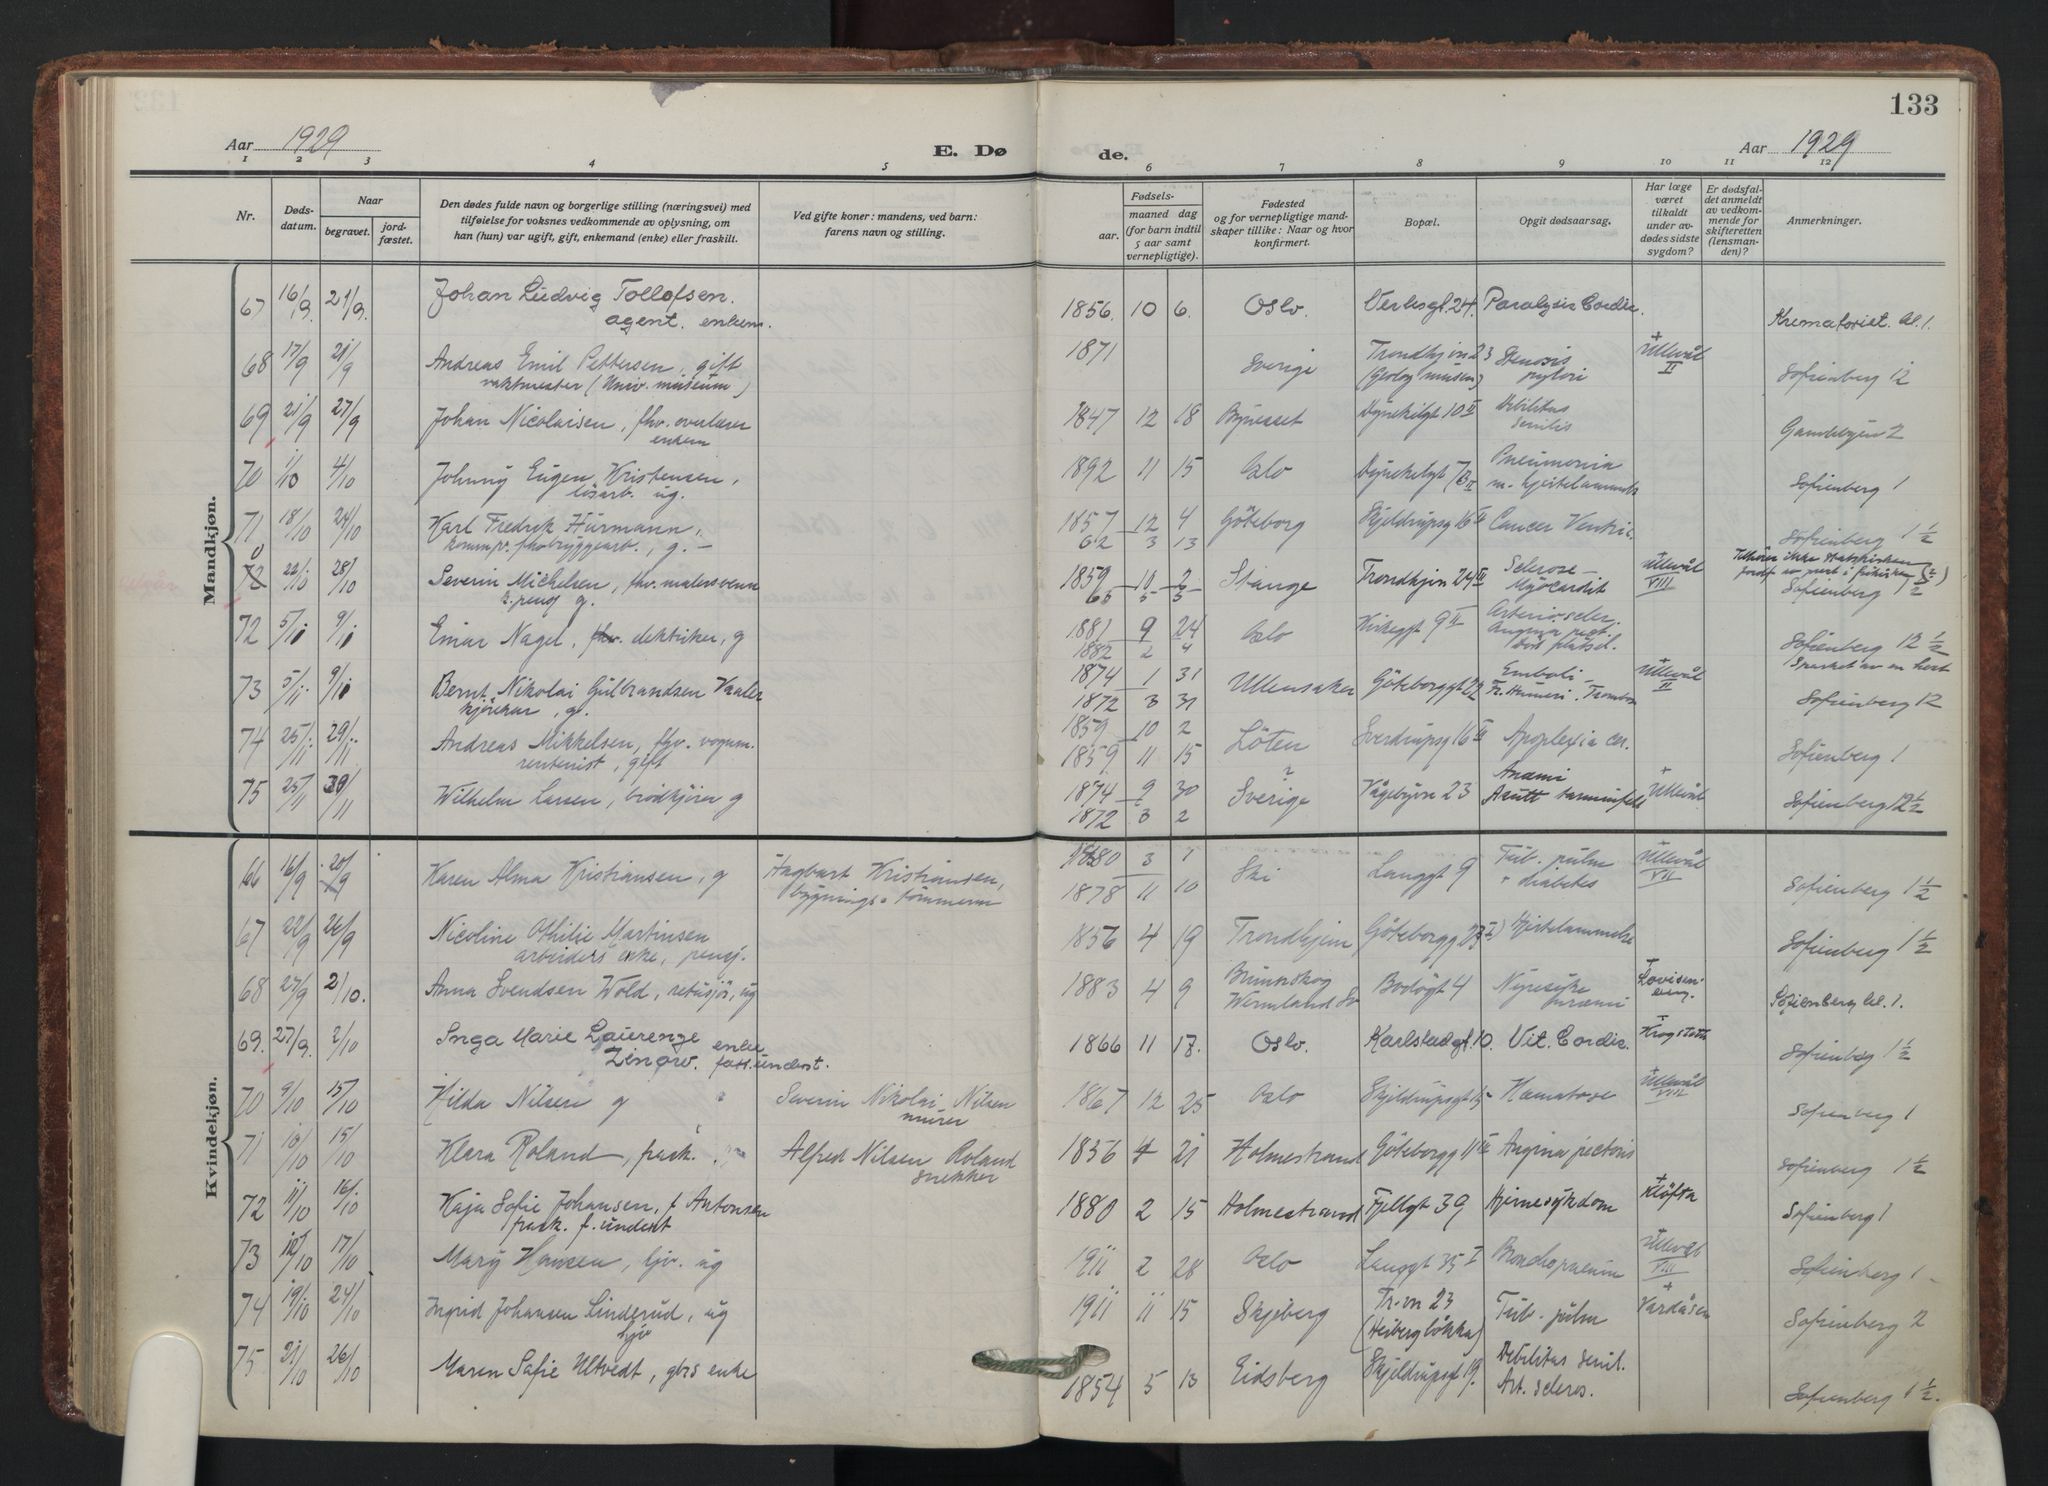 133
Aar 1929
E. Dø
de.
Aar 1929
1 2 3 4 5 6 7 8 9 10 11 12
Nr.
Døds-
datum.
Naar
begravet.
jord-
fæstet.
Den dødes fulde navn og borgerlige stilling (næringsvei) med
tilføielse for voksnes vedkommende av oplysning, om
han (hun) var ugift, gift, enkemand (enke) eller fraskilt.
Ved gifte koner: mandens, ved barn:
farens navn og stilling.
Fødsels-
aar.
maaned dag
(for barn indtil
5 aar samt
vernepligtige).
Fødested
og for vernepligtige mand-
skaper tillike: Naar og hvor
konfirmert.
Bopæl.
Opgit dødsaarsag.
Har læge
været
tilkaldt
under av-
dødes sidste
sygdom?
Er dødsfal-
det anmeldt
av vedkom-
mende for
skifteretten
(lensman-
den)?
Anmerkninger.
Mandkjøn.
67 16/9. 21/9. Johan Ludvig Tollofsen. 1856. 10 6. Oslo. Verksgt. 24. Paralysis Cordis.
agent. enkem. Krematoriet. kl. 1.
68 17/9 21/9 Andreas Emil Pettersen, gift 1871 Sverige Trondhjm 23 Stenosis pylori + Ullevål II
vaktmester (Univ. museum) (Geolog museum) Sofienberg 12
69 21/9 27/9 Johan Nicolaisen, fhv. overlærer 1847 12 18 Bynesset Dynekilgt 10 II Debilitas senilis
enkem Gamlebyen 2
70 1/10 4/10 Johnny Eugen Kristensen, 1892 11 15 Oslo Dynekilgt 7 II Pneumonia
løsarb. ug. m. hjertelammelse Sofienberg 1
71 18/10 24/10 Karl Fredrik Hurmann, 1857 12 4 Göteborg Skjeldrupsg 16 II Cancer Ventric.
g. - 62 3 13 Sofienberg 1 1/2
72 22/10 28/10 Severin Michelsen, fhv. malersvenn 1859 10 2 Stange Trondhjm 24 II Sclerose - Myocardit + Ullevål VIII
g. 65 5 5 Tilhører ikke statskirken
Sofienberg 1/2
72 5/11 9/11 Einar Nagel, fhv. elektriker, g 1881 9 24 Oslo Kirkegt 9 II Arterioscler.
1882 2 4 Angina pect. Sofienberg 12 1/2
Sparket av en hest
73 5/11 9/11 Bernt Nikolai Gulbrandsen Vaaler 1874 1 31 Ullensaker Göteborggt 22 Emboli - + Ullevål II
kjørekar, g. 1872 3 31 Fr. Humeri. Trombose Sofienberg 12
74 25/11 29/11 Andreas Mikkelsen, fhv. vognm. 1859 10 2 Löten Sverdrupsg 16 II Apoplexia cer.
rentenist, gift 1859 11 15 Sofienberg 1
75 25/11 30/11 Wilhelm Larsen, brödkjører g 1874 9 30 Sverige ? Vågebyvn 23 Anæmi + Ullevål
1872 3 2 Akutt Sofienberg 12 1/2
Kvindekjøn.
66 16/9 20/9 Karen Alma Kristiansen, g Hagbart Kristiansen, 1880 3 1 Ski Langgt 9 Tub. pulm Ullevål VII
bygnings-tömmerm 1878 11 10 + diabetes Sofienberg 1 1/2
67 22/9 26/9 Nicoline Othilie Martinsen 1856 4 19 Trondhjem Göteborgg 23 I) Hjertelammelse
arbeiders enke, pensj. Sofienberg 1 1/2
68 27/9 2/10. Anna Svendsen Wold, ug 1883 4 9 Brunnskog Bodögt 4 Nyresyke + Lovisenberg.
Wermland Sv uræmi Sofienberg kl. 1.
69. 27/9. 2/10 Inga Marie Laurenze enke 1866 11 17. Oslo. Karlstadgt. 10. Vit. Cordis. + Krogstøtten
Zinow. fatt.underst. Sofienberg 1 1/2
70 9/10 15/10 Hilda Nilsen g Severin Nikolai Nilsen 1867 12 25 Oslo Skjeldrupsgt 15 Hæmatose + Ullevål VIII
murer Sofienberg 1
71 10/10 15/10 Klara Roland, frask. Alfred Nilsen Roland 1856 4 21 Holmestrand Göteborgg 11 III Angina pectoris
snekker Sofienberg 1 1/2
72 11/10 16/10 Kaja Sofie Johansen, f Antonsen 1880 2 15 Holmestrand Fjellgt 39 Hjernesykdom + Kløfta
frask. f.underst Sofienberg 1
73 12/10 17/10 Mary Hansen, hjv. ug 1911 2 28 Oslo Langgt 35 I Bronchopneum Ullevål VIII Sofienberg 1 -
74 19/10 24/10 Ingrid Johansen Linderud, ug 1911 11 15 Skjeberg Tr.vn 23 Tub. pulm + Vardåsen
hjv (Heiberg løkka) Sofienberg 2
75 21/10 26/10 Maren Sofie Ultvedt, gbrs enke 1854 5 13 Eidsberg Skjeldrupsgt 19. Debilitas senil.
Art. scleros. Sofienberg 1 1/2.